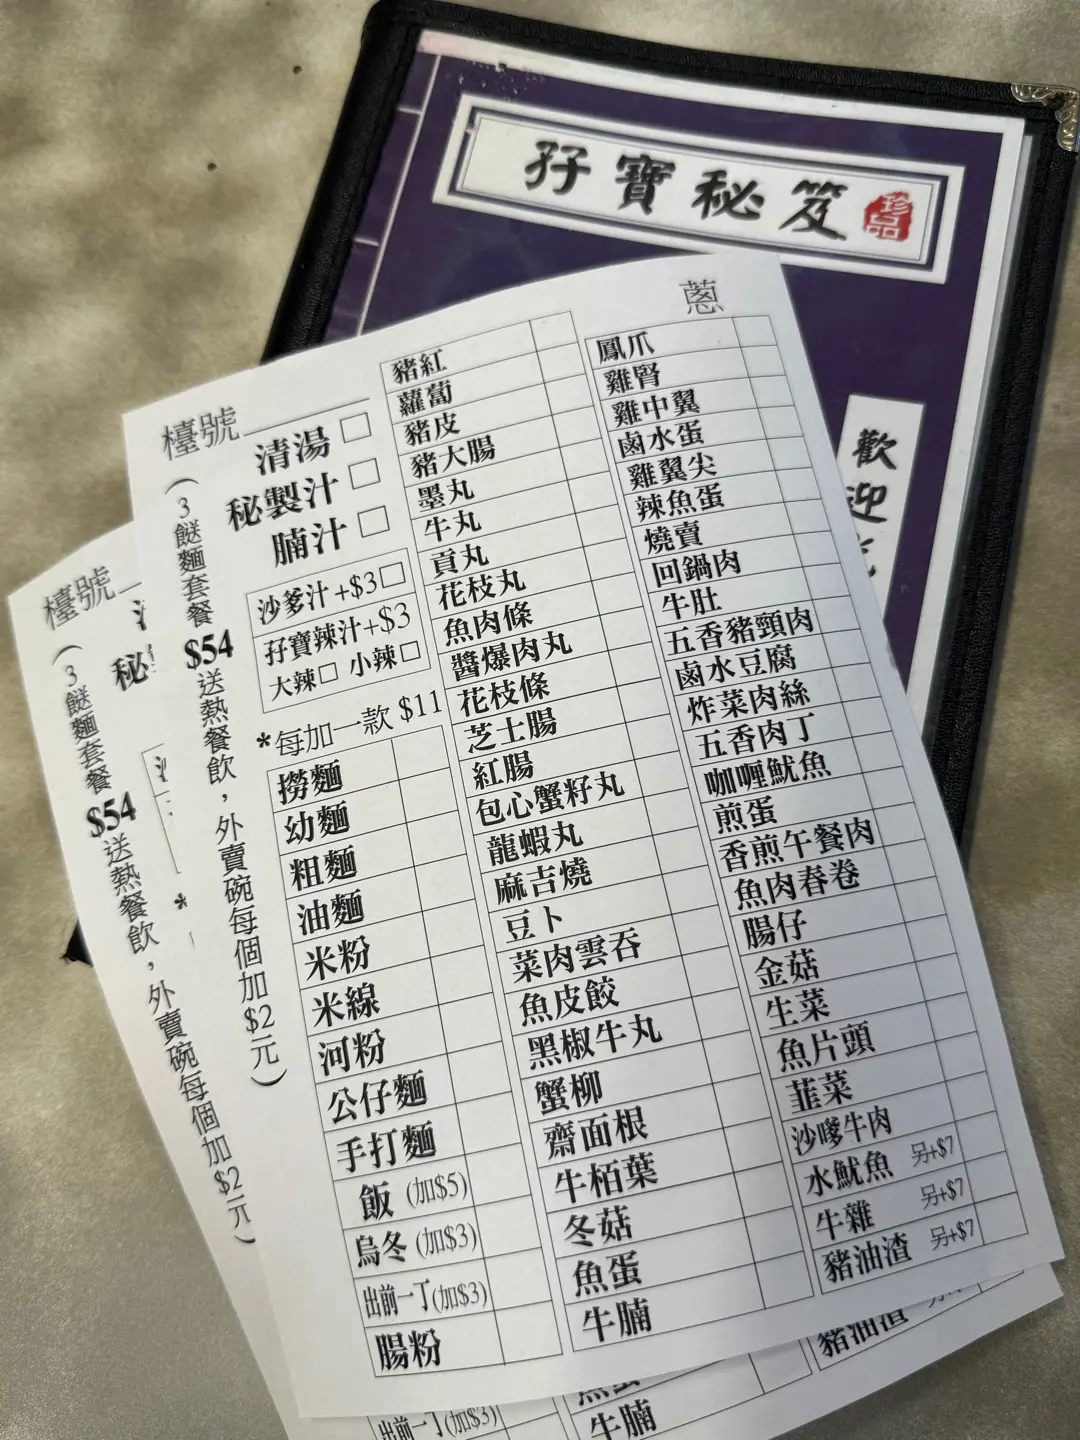 孖寶秘笈
珍品
歡迎
蔥
檯號
清湯
秘製汁
腩汁
(3餸麵套餐$54送熱餐飲，外賣碗每個加$2元)
沙爹汁+$3
孖寶辣汁+$3
大辣 小辣
*每加一款 $11
撈麵
幼麵
粗麵
油麵
米粉
米線
河粉
公仔麵
手打麵
飯 (加$5)
烏冬 (加$3)
出前一丁(加$3)
腸粉
豬紅
蘿蔔
豬皮
豬大腸
墨丸
牛丸
貢丸
花枝丸
魚肉條
醬爆肉丸
花枝條
芝士腸
紅腸
包心蟹籽丸
龍蝦丸
麻吉燒
豆卜
菜肉雲吞
魚皮餃
黑椒牛丸
蟹柳
齋面根
牛栢葉
冬菇
魚蛋
牛腩
鳳爪
雞腎
雞中翼
鹵水蛋
雞翼尖
辣魚蛋
燒賣
回鍋肉
牛肚
五香豬頸肉
鹵水豆腐
炸菜肉絲
五香肉丁
咖喱魷魚
煎蛋
香煎午餐肉
魚肉春卷
腸仔
金菇
生菜
魚片頭
韮菜
沙嗲牛肉
水魷魚 另+$7
牛雜 另+$7
豬油渣 另+$7
檯號
秘
(3餸麵套餐$54送熱餐飲，外賣碗每個加$2元)
*
出前一丁(加$3)
魚蛋
牛腩
豬油渣